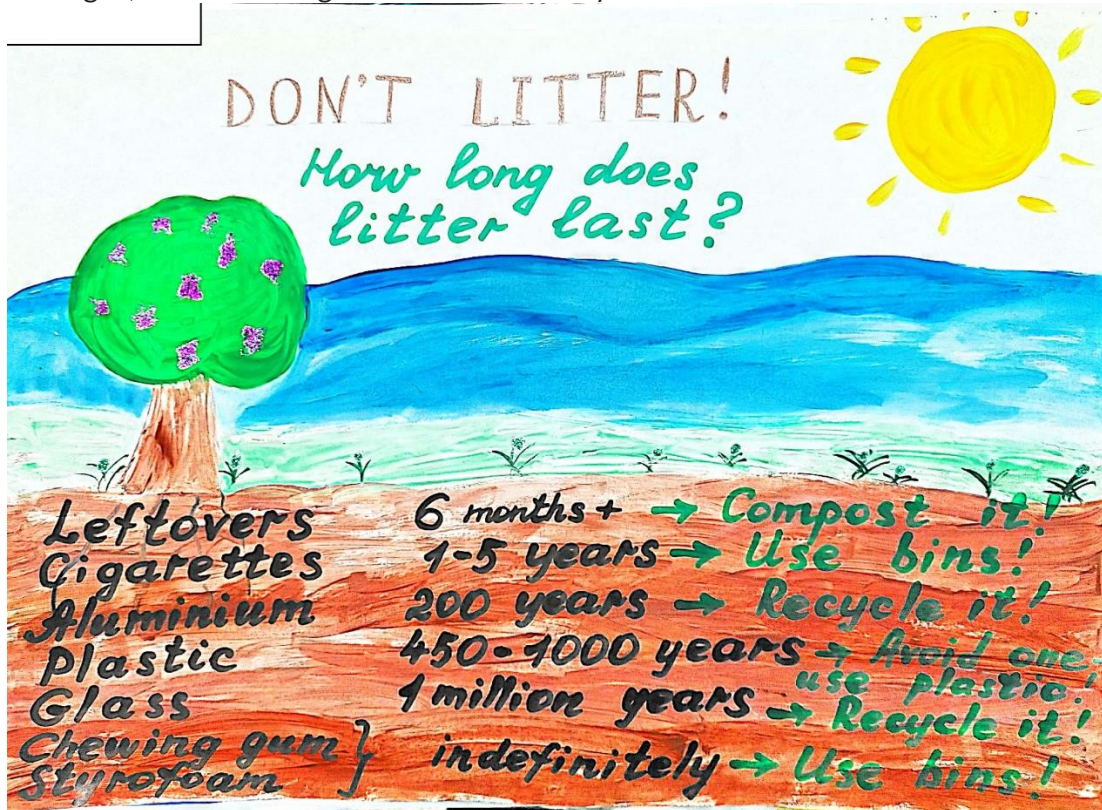 DON'T LITTER!
How long does
litter last?
Leftovers 6 months + → Compost it!
Cigarettes 1-5 years → Use bins!
Aluminium 200 years → Recycle it!
Plastic 450-1000 years → Avoid one-
use plastic!
Glass 1 million years → Recycle it!
Chewing gum
Styrofoam } indefinitely → Use bins!